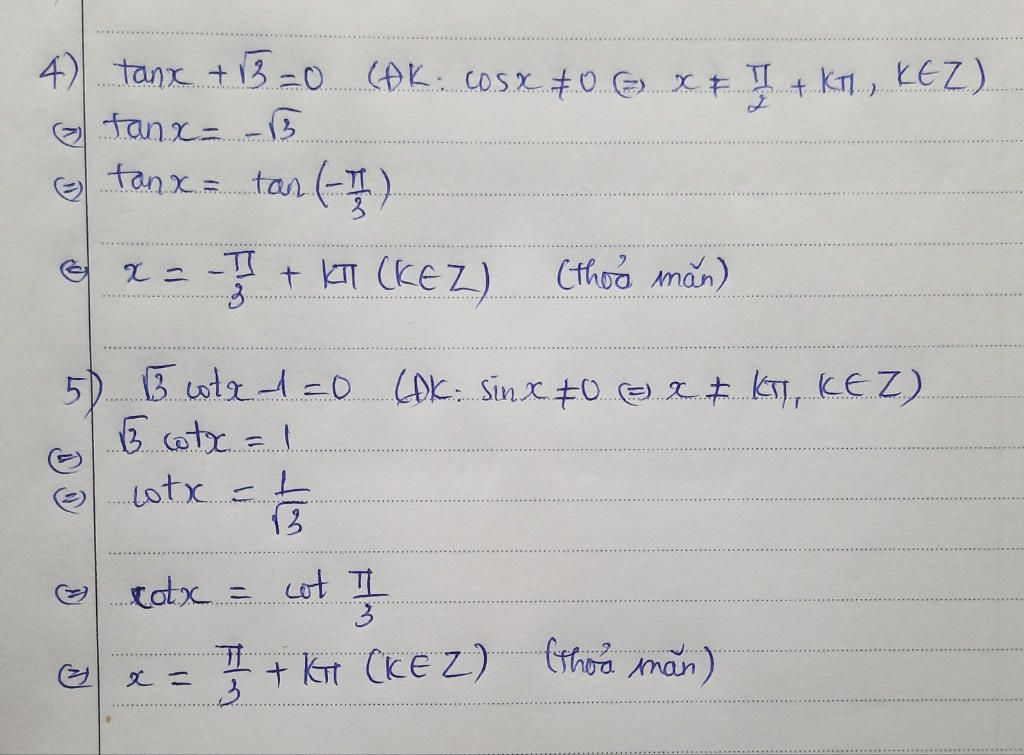 4) tanx + √3 = 0 (ĐK: cosx ≠ 0 ⇔ x ≠ π/2 + kπ, k∈Z)
⇔ tanx = -√3
⇔ tanx = tan(-π/3)
⇔ x = -π/3 + kπ (k∈Z) (thoả mãn)
5) √3 cotx - 1 = 0 (ĐK: sinx ≠ 0 ⇔ x ≠ kπ, k∈Z)
⇔ √3 cotx = 1
⇔ cotx = 1/√3
⇔ cotx = cot π/3
⇔ x = π/3 + kπ (k∈Z) (thoả mãn)